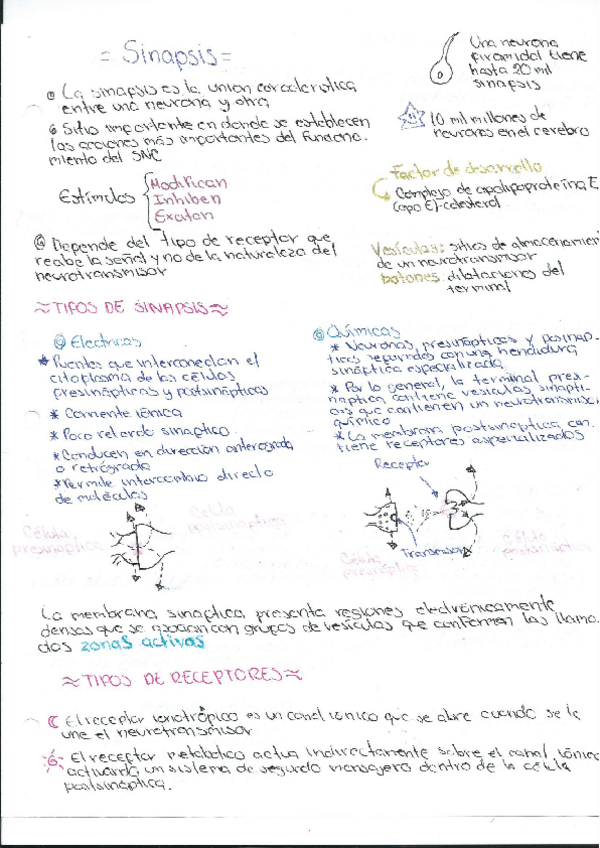 = Sinapsis =
La sinapsis es la union caracteristica
entre una neurona y otra
Sitio importante en donde se establecen
las acciones más importantes del funciona-
miento del SNC
Estímulos
Modifican
Inhiben
Exaltan
Depende del tipo de receptor que
recibe la señal y no de la naturaleza del
neurotransmisor
Una neurona
piramidal tiene
hasta 20 mil
sinapsis
10 mil millones de
neuronas en el cerebro
Factor de desarrollo
Complejo de apolipoproteína E
(apo E)-colesterol
Vesículas: sitios de almacenamien
de un neurotransmisor
botones: dilataciones del
terminal
≈TIPOS DE SINAPSIS≈
Electricas
* Puentes que interconectan el
citoplasma de las células
presinápticas y postsinápticas
* Corriente iónica
* Poco retardo sinaptico
* Conducen en dirección anterograda
o retrógrada
* Permite intercambio directo
de moléculas
Célula
presináptica
Célula
postsináptica
Químicas
* Neuronas, presinápticas y posinap-
ticas separadas con una hendidura
sináptica especializada
* Por lo general, la terminal presi-
náptica contiene vesículas sinapti-
cas que contienen un neurotransmisor
químico
* La membrana postsinaptica con-
tiene receptores especializados
Receptor
Transmisor
Célula
presináptica
Célula
postsináptica
La membrana, sinaptica, presenta regiones electrónicamente
densas que se asocian con grupos de vesículas que conforman las llama-
das zonas activas
≈TIPOS DE RECEPTORES≈
El receptor ionotrópico es un canal iónico que se abre cuando se le
une el neurotransmisor
El receptor metabolico actua indirectamente sobre el canal iónico
activando un sistema de segundo mensajero dentro de la célula
postsináptica.